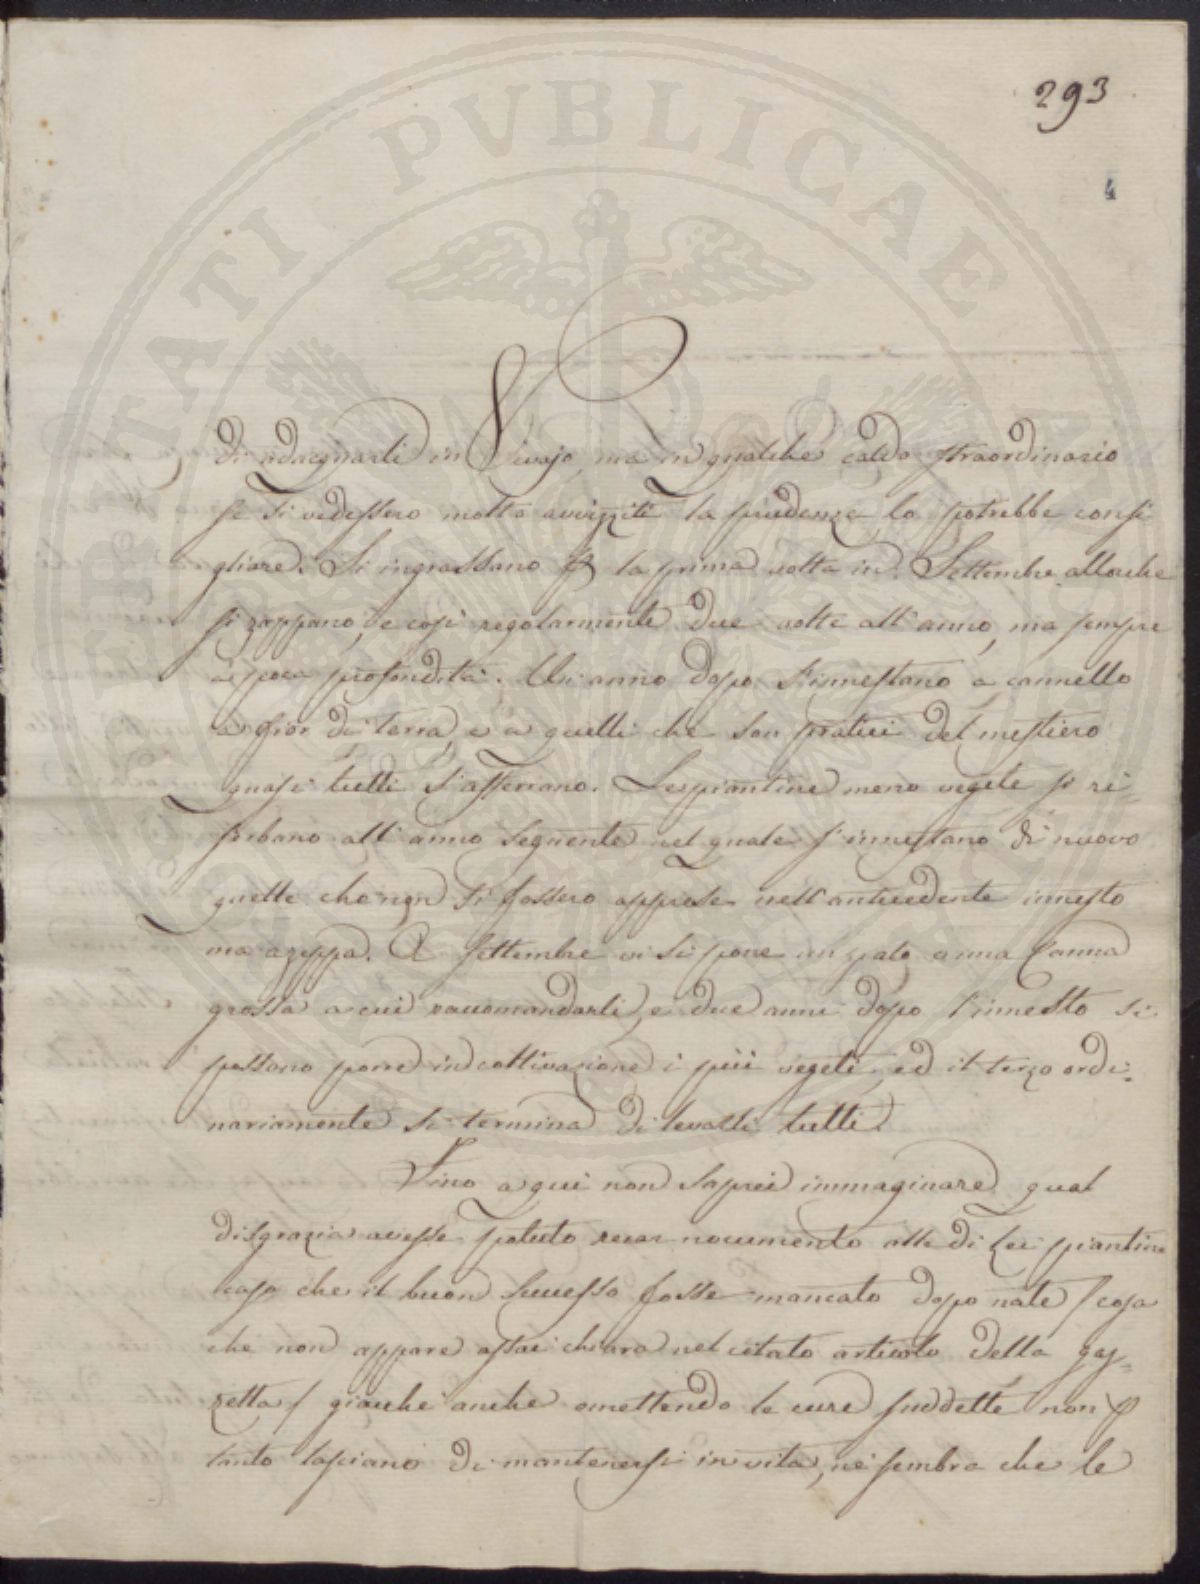 293
4
di adacquarli in Vivajo, ma in qualche caldo straordinario
se si vedessero molto avvizziti la prudenza lo potrebbe consi
gliare. Si ingrassano p la prima volta in Settembre allorche
si zappano, e così regolarmente due volte all'anno, ma sempre
a poca profondità. Un anno dopo s'innestano a cannello
a fior di terra, e a quelli che son pratici del mestiero
quasi tutti s'afferrano. Le piantine meno vegete si ri=
serbano all'anno seguente nel quale s'innestano di nuovo
quelle che non si fossero apprese nell'antecedente innesto
ma a zeppa. A Settembre vi si pone un palo o una Canna
grossa a cui raccomandarli, e due anni dopo l'innesto si
possano porre in coltivazione i più vegeti, ed il terzo ordi=
nariamente si termina di levarli tutti.
Fino a qui non saprei immaginare qual
disgrazia avesse potuto recar nocumento alle di Lei piantine
caso che il buon successo fosse mancato dopo nate / cosa
che non appare assai chiara nel citato articolo della gaz=
zetta / giacche anche omettendo le cure suddette non p
tanto lasciano di mantenersi in vita, ne sembra che le
LIBERTATI PVBLICAE